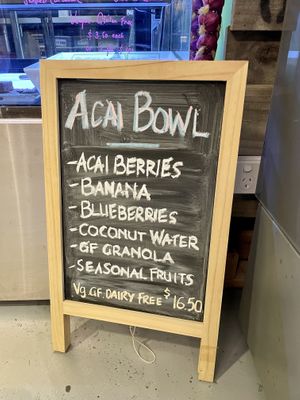 Vegan Gluten Free
$3.60 each
ACAI BOWL
-ACAI BERRIES
-BANANA
-BLUEBERRIES
-COCONUT WATER
-GF GRANOLA
-SEASONAL FRUITS
Vg GF DAIRY FREE $16.50